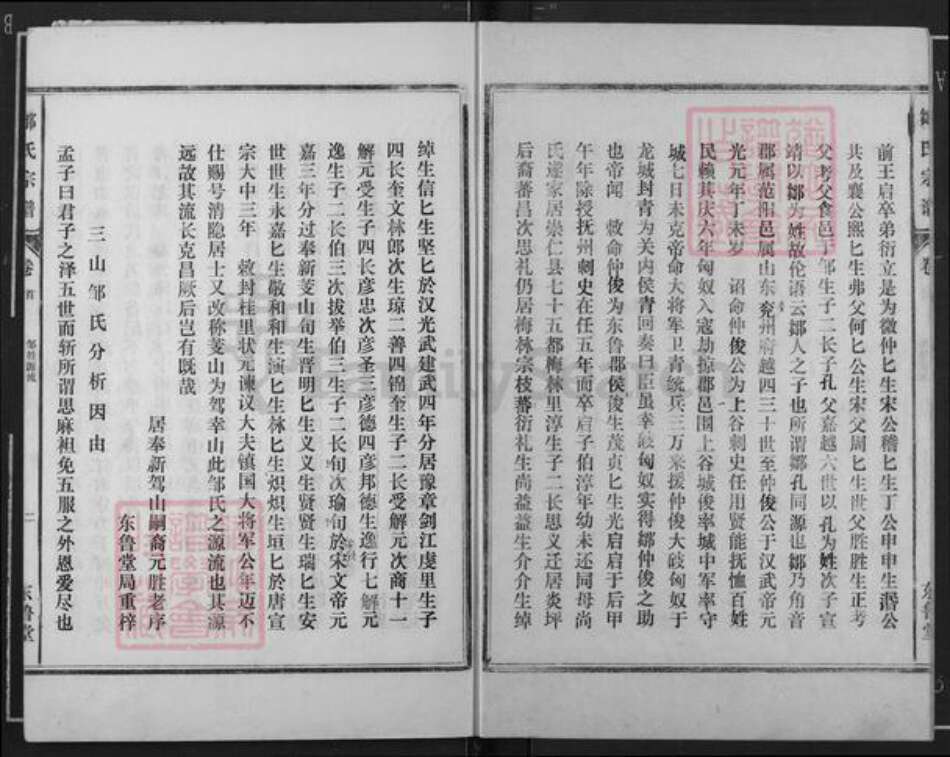 前王启卒弟衍立是为微仲匕生宋公稽匕生丁公申申生湣公
共及襄公熙匕生弗父何匕公生宋父周匕生世父胜胜生正考
父考父食邑于邹生子二长子孔父嘉越六世以孔为姓次子宣
靖以邹为姓故伦语云邹人之子也所谓邹孔同源也邹乃角音
郡属范阳邑属山东兖州府越四三十世至仲俊公于汉武帝元
光元年丁未岁 诏命仲俊公为上谷刺史任用贤能抚恤百姓
民赖其庆六年匈奴入寇劫掠郡邑围上谷城俊率城中军率守
城七日未克帝命大将军卫青统兵三万来援仲俊大破匈奴于
龙城封青为关内侯青回奏曰臣虽幸破匈奴实得邹仲俊之助
也帝闻 敕命仲俊为东鲁郡侯俊生茂贞匕生光启启于后甲
午年除授抚州刺史在任五年而卒启子伯淳年幼未还同母尚
氏遂家居崇仁县七十五都梅林里淳生子二长思义迁居炎坪
后裔蕃昌次思礼仍居梅林宗枝蕃衍礼生尚益益生介介生绰
绰生信匕生坚匕於汉光武建武四年分居豫章剑江虔里生子
四长奎文林郎次生琼二善四锦奎生子二长受解元次商十一
解元受生子四长彦忠次彦圣三彦德四彦邦德生逸行七解元
逸生子二长伯三次拔举伯三生子二长旬次瑜旬於宋文帝元
嘉三年分过奉新菱山旬生晋明匕生义义生贤贤生瑞匕生安
世世生永嘉匕生敬和和生演匕生林匕生炽炽生垣匕於唐宣
宗大中三年 敕封桂里状元谏议大夫镇国大将军公年迈不
仕赐号清隐居士又改称菱山为驾幸山此邹氏之源流也其源
远故其流长克昌厥后岂有既哉
居奉新驾山嗣裔元胜老序
东鲁堂局重梓
三山邹氏分析因由
孟子曰君子之泽五世而斩所谓思麻袒免五服之外恩爱尽也
邹氏宗谱
卷首
邹姓源流
二
东鲁堂
FamilySearch